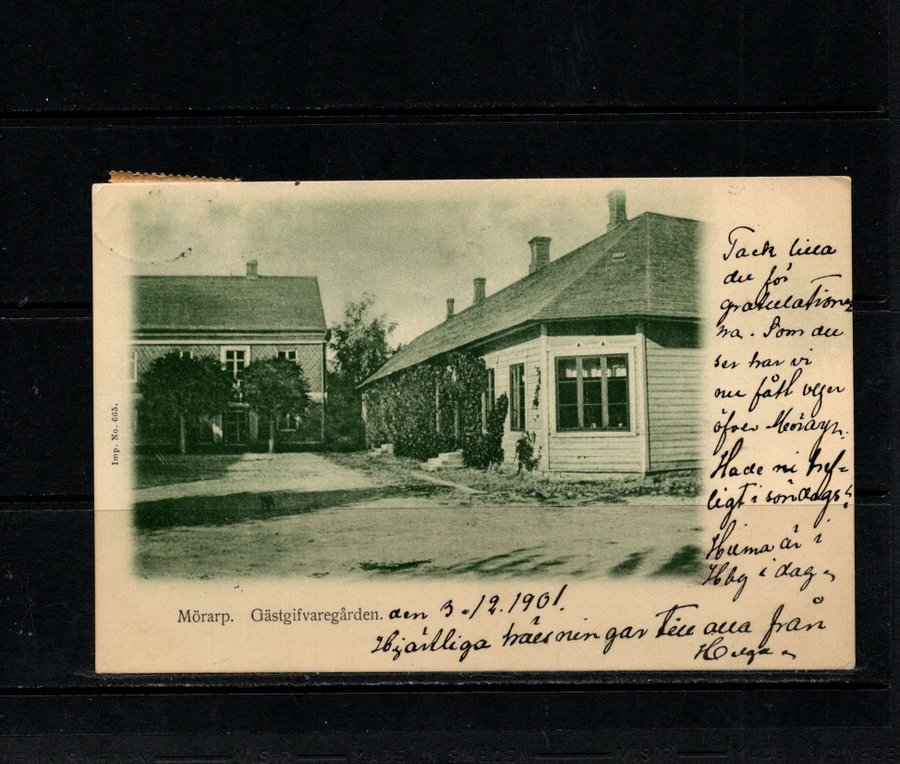 Tack lilla
du för
gratulationer
na. Som du
ser har vi
nu fått vyer
öfver Mörarp.
Hade ni tref-
ligt i söndags?
Hilma är i
Hbg i dag
Imp. No. 665.
Mörarp. Gästgifvaregården. den 3.-12.1901.
Hjärtliga hälsningar till alla från
Helga
MADE IN SWEDEN